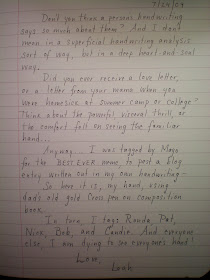 7/24/09
Don't you think a persons handwriting
says so much about them? And I don't
mean in a superficial handwriting analysis
sort of way, but in a deep heart and soul
way.
Did you ever receive a love letter,
or a letter from your mama when you
were homesick at summer camp or college?
Think about the powerful, visceral thrill, or
the comfort felt on seeing the familiar
hand...
Anyway... I was tagged by Mayo
for the BEST EVER meme, to post a blog
entry written out in my own handwriting-
So here it is, my hand, using
dad's old gold Cross pen on Composition
book.
In turn, I tag: Ronda, Pat,
Nina, Bob, and Candie. And everyone
else, I am dying to see everyone's hand!
Love,
Leah